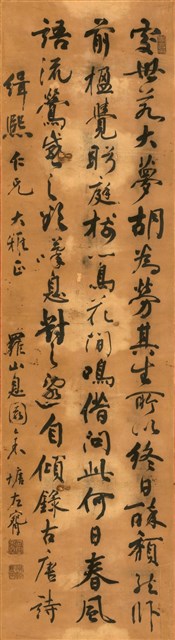 處世若大夢胡為勞其生所以終日醉頹然卧
前楹覺眄庭一鳥花間鳴借問此何日春風
語流鶯感之欲歎息對之還自傾錄古唐詩
緝熙仁兄大雅正 羅山息園